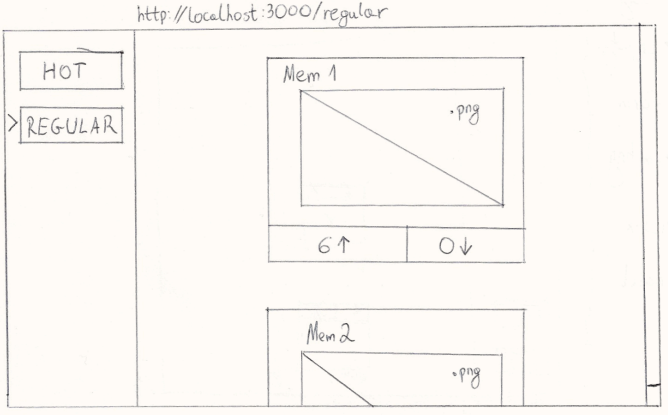 http://localhost:3000/regular
HOT
> REGULAR
Mem 1
.png
6↑
0↓
Mem 2
.png